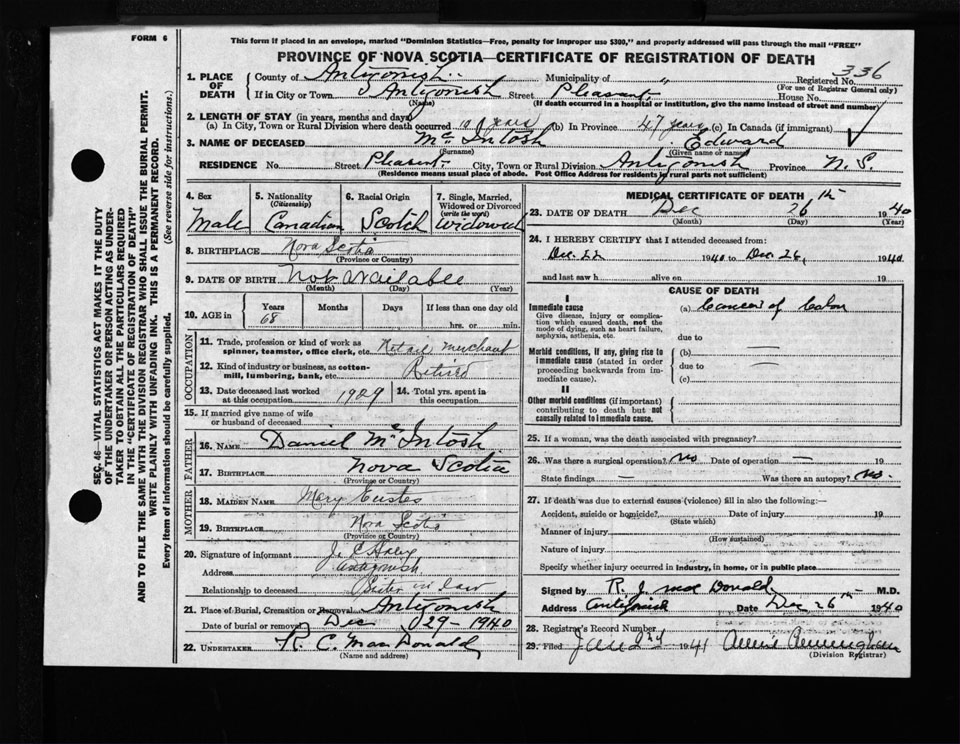 FORM 6
This form if placed in an envelope, marked "Dominion Statistics—Free, penalty for improper use $300," and properly addressed will pass through the mail "FREE"
PROVINCE OF NOVA SCOTIA—CERTIFICATE OF REGISTRATION OF DEATH
336
1. PLACE OF DEATH County of Antigonish Municipality of " Registered No.
(For use of Registrar General only)
If in City or Town Antigonish Street Pleasant House No.
(Name) (If death occurred in a hospital or institution, give the name instead of street and number)
2. LENGTH OF STAY (in years, months and days)
(a) In City, Town or Rural Division where death occurred years (b) In Province 47 years (c) In Canada (if immigrant)
3. NAME OF DECEASED McIntosh Edward
(Surname) (Given name or names)
RESIDENCE No. Street Pleasant City, Town or Rural Division Antigonish Province N.S.
(Residence means usual place of abode. Post Office Address for residents in rural parts not sufficient)
4. Sex
Male
5. Nationality
(Citizenship)
Canadian
6. Racial Origin
Scotch
7. Single, Married, Widowed or Divorced
(write the word)
Widowed
8. BIRTHPLACE Nova Scotia
(Province or Country)
9. DATE OF BIRTH Not available
(Month) (Day) (Year)
10. AGE in Years Months Days If less than one day old
68 hrs. or min.
OCCUPATION
11. Trade, profession or kind of work as spinner, teamster, office clerk, etc. Retail merchant
12. Kind of industry or business, as cotton-mill, lumbering, bank, etc. Retired
13. Date deceased last worked at this occupation 1929 14. Total yrs. spent in this occupation
15. If married give name of wife or husband of deceased
FATHER
16. NAME Daniel McIntosh
17. BIRTHPLACE Nova Scotia
(Province or Country)
MOTHER
18. MAIDEN NAME Mary
19. BIRTHPLACE Nova Scotia
(Province or Country)
20. Signature of informant J.
Address Antigonish
Relationship to deceased in law
21. Place of Burial, Cremation or Removal Antigonish
Date of burial or removal Dec 29 - 1940
22. UNDERTAKER R. C. MacDonald
(Name and address)
MEDICAL CERTIFICATE OF DEATH
23. DATE OF DEATH Dec 26th 1940
(Month) (Day) (Year)
24. I HEREBY CERTIFY that I attended deceased from:
Dec. 22 1940 to Dec 26, 1940
and last saw h alive on 19
CAUSE OF DEATH
I
Immediate cause (a) Cancer of Colon
Give disease, injury or complication which caused death, not the mode of dying, such as heart failure, asphyxia, asthenia, etc.
due to
Morbid conditions, if any, giving rise to immediate cause (stated in order proceeding backwards from immediate cause).
(b) —
due to —
(c)
II
Other morbid conditions (if important) contributing to death but not causally related to immediate cause.
25. If a woman, was the death associated with pregnancy?
26. Was there a surgical operation? no Date of operation — 19
State findings — Was there an autopsy? no.
27. If death was due to external causes (violence) fill in also the following:—
Accident, suicide or homicide? Date of injury 19
(State which)
Manner of injury
(How sustained)
Nature of injury
Specify whether injury occurred in industry, in home, or in public place
Signed by R. J. MacDonald M.D.
Address Antigonish Date Dec 26th 1940
28. Registrar's Record Number
29. Filed Jan 2nd 1941
(Division Registrar)
SEC. 46—VITAL STATISTICS ACT MAKES IT THE DUTY
OF THE UNDERTAKER OR PERSON ACTING AS UNDER-
TAKER TO OBTAIN ALL THE PARTICULARS REQUIRED
IN THE "CERTIFICATE OF REGISTRATION OF DEATH"
AND TO FILE THE SAME WITH THE DIVISION REGISTRAR WHO SHALL ISSUE THE BURIAL PERMIT.
WRITE PLAINLY WITH UNFADING INK. THIS IS A PERMANENT RECORD.
Every item of information should be carefully supplied. (See reverse side for instructions.)